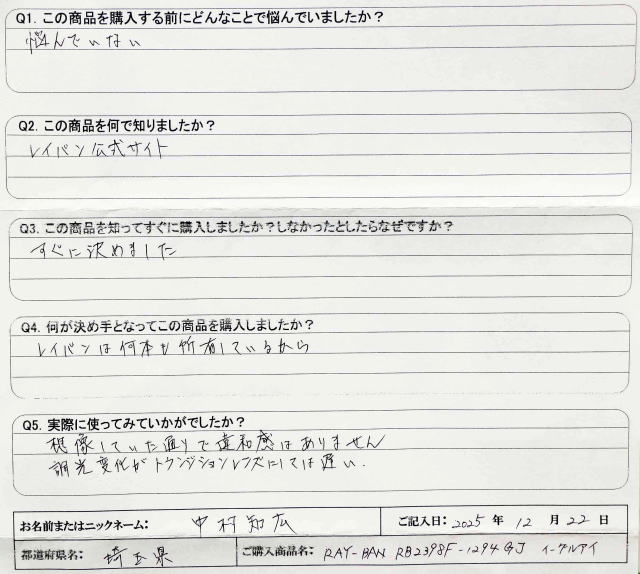 Q1. この商品を購入する前にどんなことで悩んでいましたか？
悩んでいない
Q2. この商品を何で知りましたか？
レイバン公式サイト
Q3. この商品を知ってすぐに購入しましたか？しなかったとしたらなぜですか？
すぐに決めました
Q4. 何が決め手となってこの商品を購入しましたか？
レイバンは何本も所有しているから
Q5. 実際に使ってみていかがでしたか？
想像していた通りで違和感はありません
調光変化がトランジションレンズにしては遅い.
お名前またはニックネーム： 中村知広 ご記入日：2025年12月22日
都道府県名： 埼玉県 ご購入商品名： RAY-BAN RB2398F-1294GJ イーグルアイ